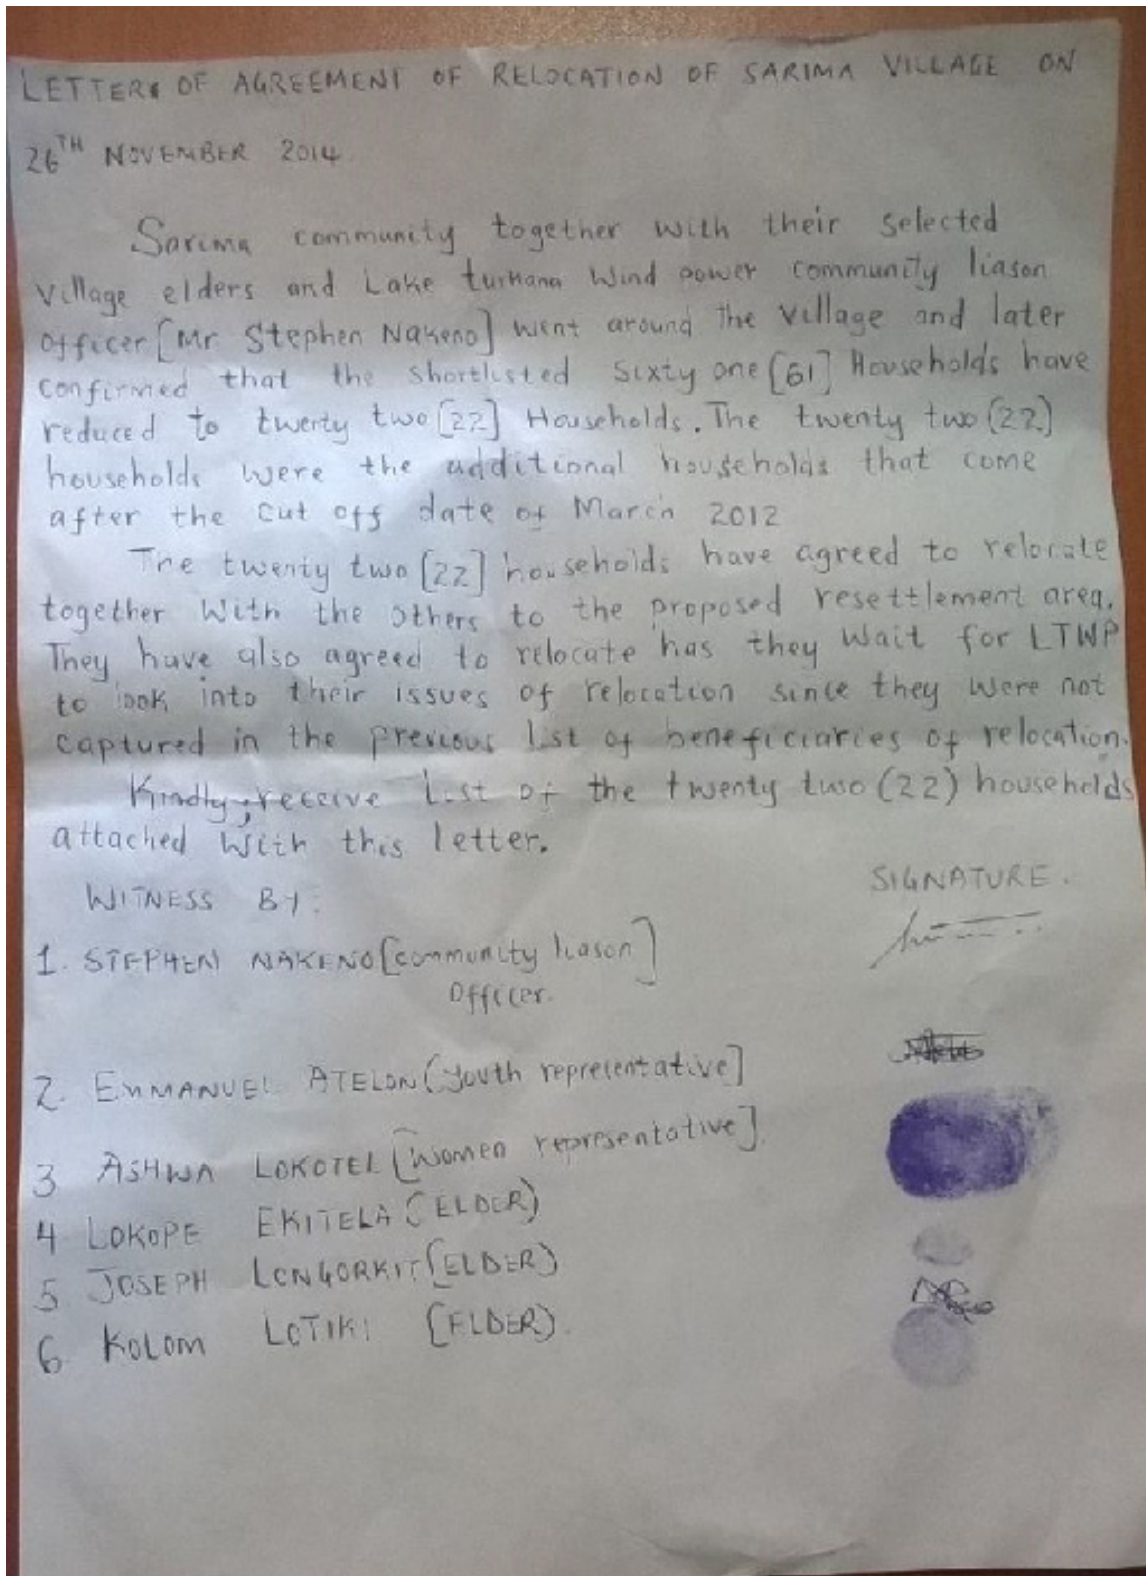 LETTER OF AGREEMENT OF RELOCATION OF SARIMA VILLAGE ON
26TH NOVEMBER 2014.
Sarima community together with their selected
village elders and Lake turkana Wind power community liason
Officer [Mr Stephen Nakeno] went around the village and later
confirmed that the shortlisted Sixty one [61] Households have
reduced to twenty two [22] Households. The twenty two (22)
households were the additional households that come
after the cut off date of March 2012
The twenty two [22] households have agreed to relocate
together with the others to the proposed resettlement area.
They have also agreed to relocate has they wait for LTWP
to look into their issues of relocation since they were not
captured in the previous list of beneficiaries of relocation.
Kindly, receive List of the twenty two (22) households
attached with this letter.
SIGNATURE.
WITNESS BY:
1. STEPHEN NAKENO [community liason]
Officer.
2. EMMANUEL ATELON (youth representative]
3 ASHWA LOKOTEL [Women representative].
4 LOKOPE EKITELA (ELDER)
5 JOSEPH LONGORKIT (ELDER)
6 KOLOM LOTIKI (ELDER).